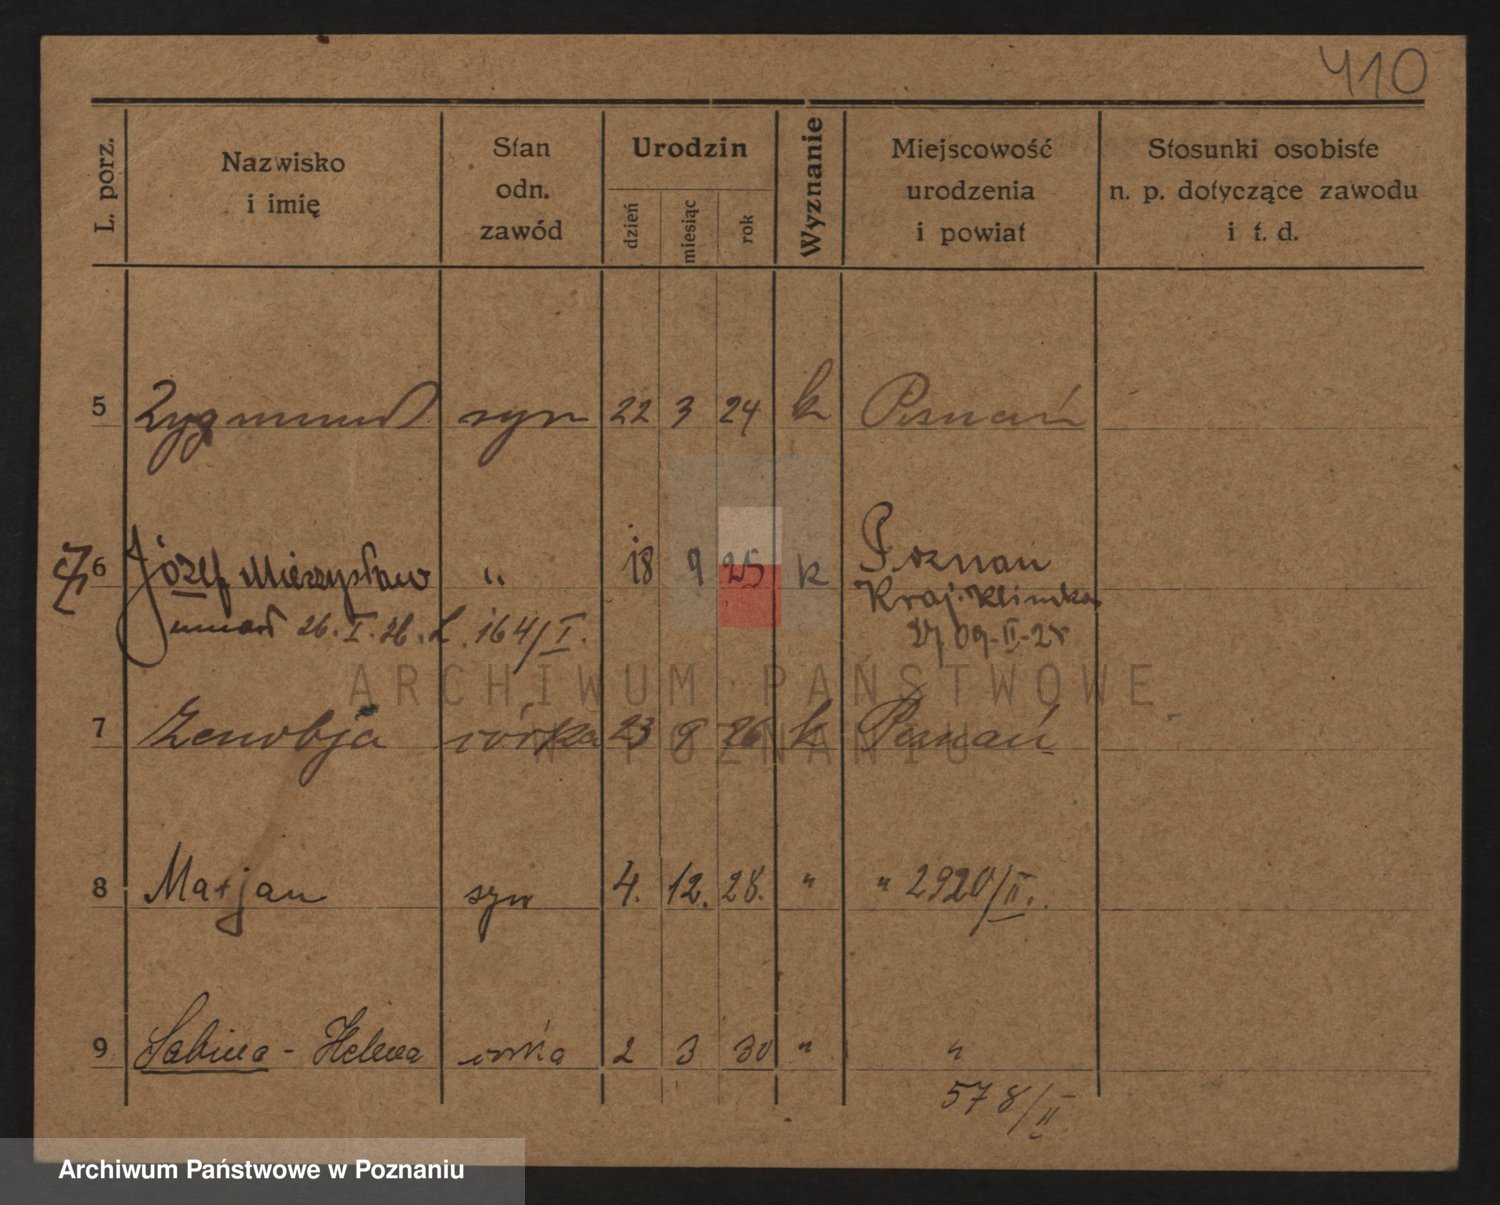 410
L. porz.
Nazwisko
i imię
Stan
odn.
zawód
Urodzin
dzień
miesiąc
rok
Wyznanie
Miejscowość
urodzenia
i powiat
Stosunki osobiste
n. p. dotyczące zawodu
i t. d.
5 Zygmund syn 22 3 24 k Poznań
6 Józef Mieczysław " 18 9 25 k Poznań
Kraj. Klinika
zmarł 26. I. 26. L. 164/I. 2709-II-25
7 Zenobja córka 23 8 26 k Poznań
8 Marjan syn 4. 12. 28. " " 2920/II.
9 Sabina - Helena córka 2 3 30 " "
578/II
ARCHIWUM PAŃSTWOWE
W POZNANIU
Archiwum Państwowe w Poznaniu